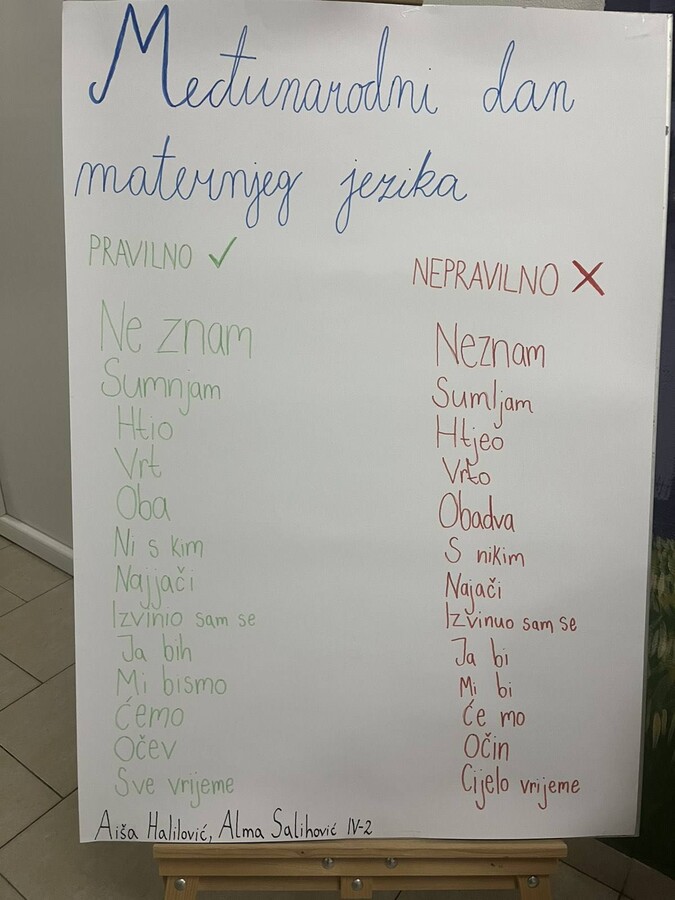 Međunarodni dan
maternjeg jezika
PRAVILNO ✓
NEPRAVILNO X
Ne znam
Neznam
Sumnjam
Sumljam
Htio
Htjeo
Vrt
Vrto
Oba
Obadva
Ni s kim
S nikim
Najjači
Najači
Izvinio sam se
Izvinuo sam se
Ja bih
Ja bi
Mi bismo
Mi bi
Ćemo
Će mo
Očev
Očin
Sve vrijeme
Cijelo vrijeme
Aiša Halilović, Alma Salihović IV-2